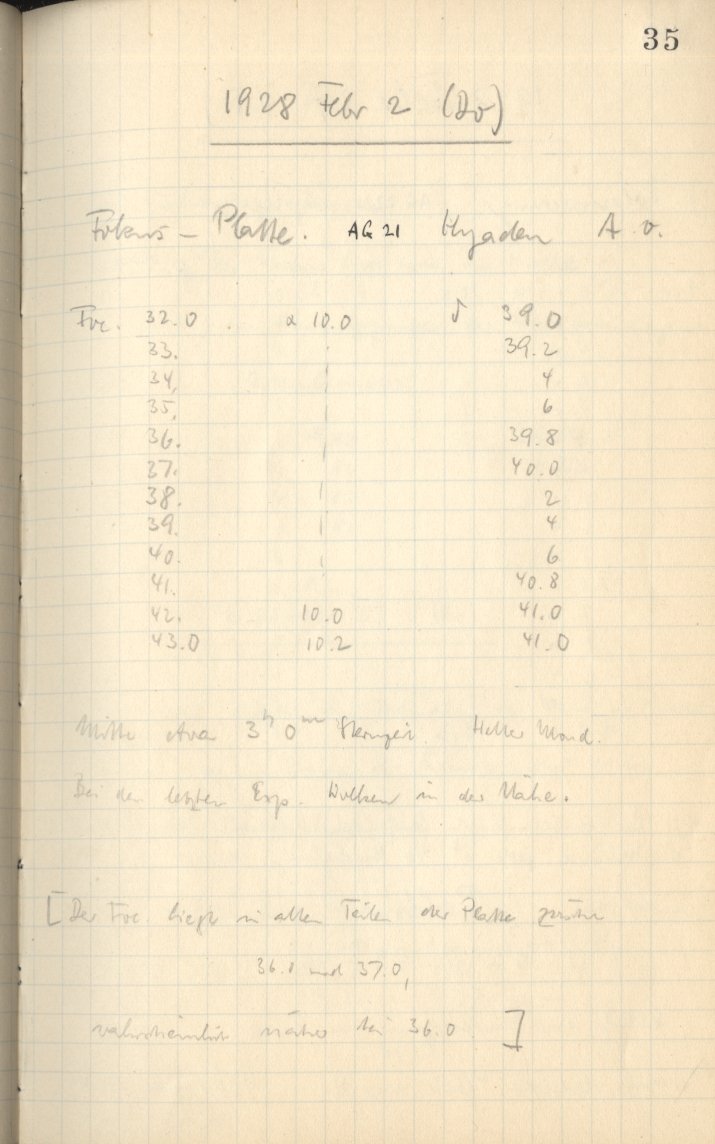 35
1928 Febr 2 (Do)
Fokus - Platte. AG 21 Hyaden A. v.
Foc. 32.0 . α 10.0 δ 39.0
33. ' 39.2
34. ' 4
35. ' 6
36. ' 39.8
37. 40.0
38. ' 2
39. ' 4
40. ' 6
41. 40.8
42. 10.0 41.0
43.0 10.2 41.0
Mitte etwa 3h 0m Sternzeit. Heller Mond.
Bei den letzten Exp. Wolken in der Nähe.
[Der Foc. liegt in allen Teilen der Platte zwischen
36.0 und 37.0,
wahrscheinlich näher bei 36.0 ]